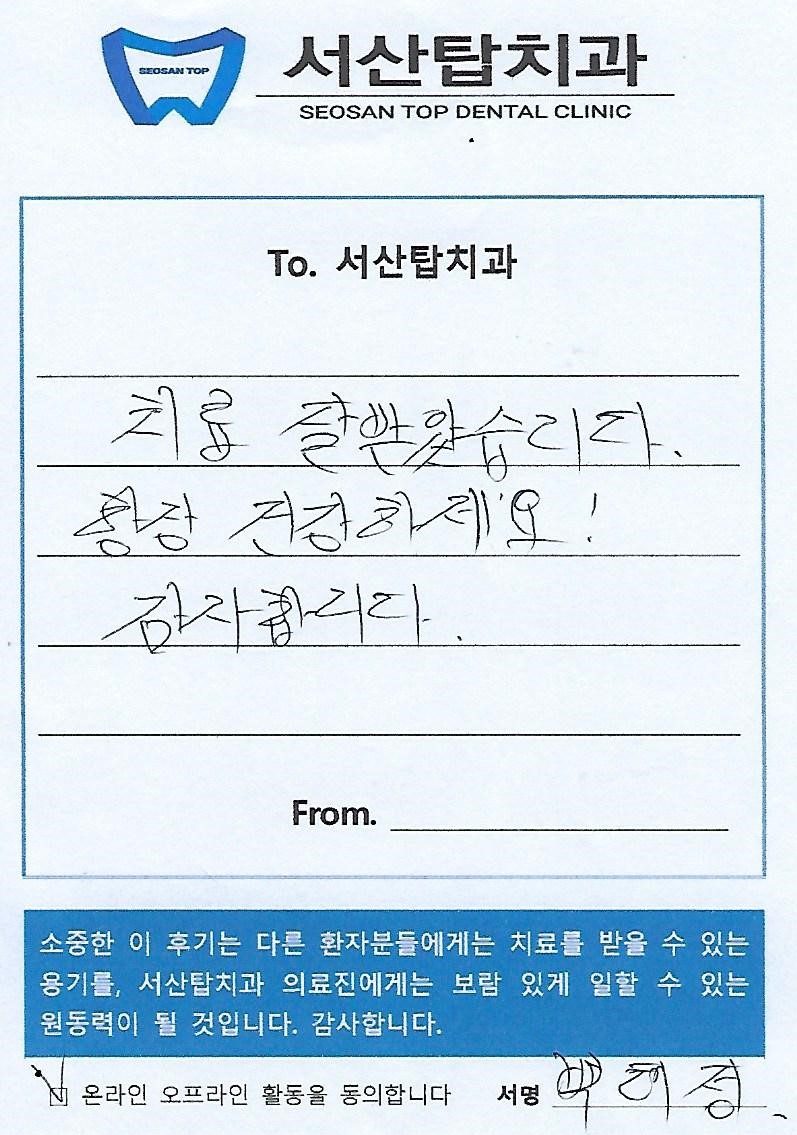 SEOSAN TOP
서산탑치과
SEOSAN TOP DENTAL CLINIC
To. 서산탑치과
치료 잘받았습니다.
항상 건강하세요!
감사합니다.
From.
소중한 이 후기는 다른 환자분들에게는 치료를 받을 수 있는
용기를, 서산탑치과 의료진에게는 보람 있게 일할 수 있는
원동력이 될 것입니다. 감사합니다.
온라인 오프라인 활동을 동의합니다 서명